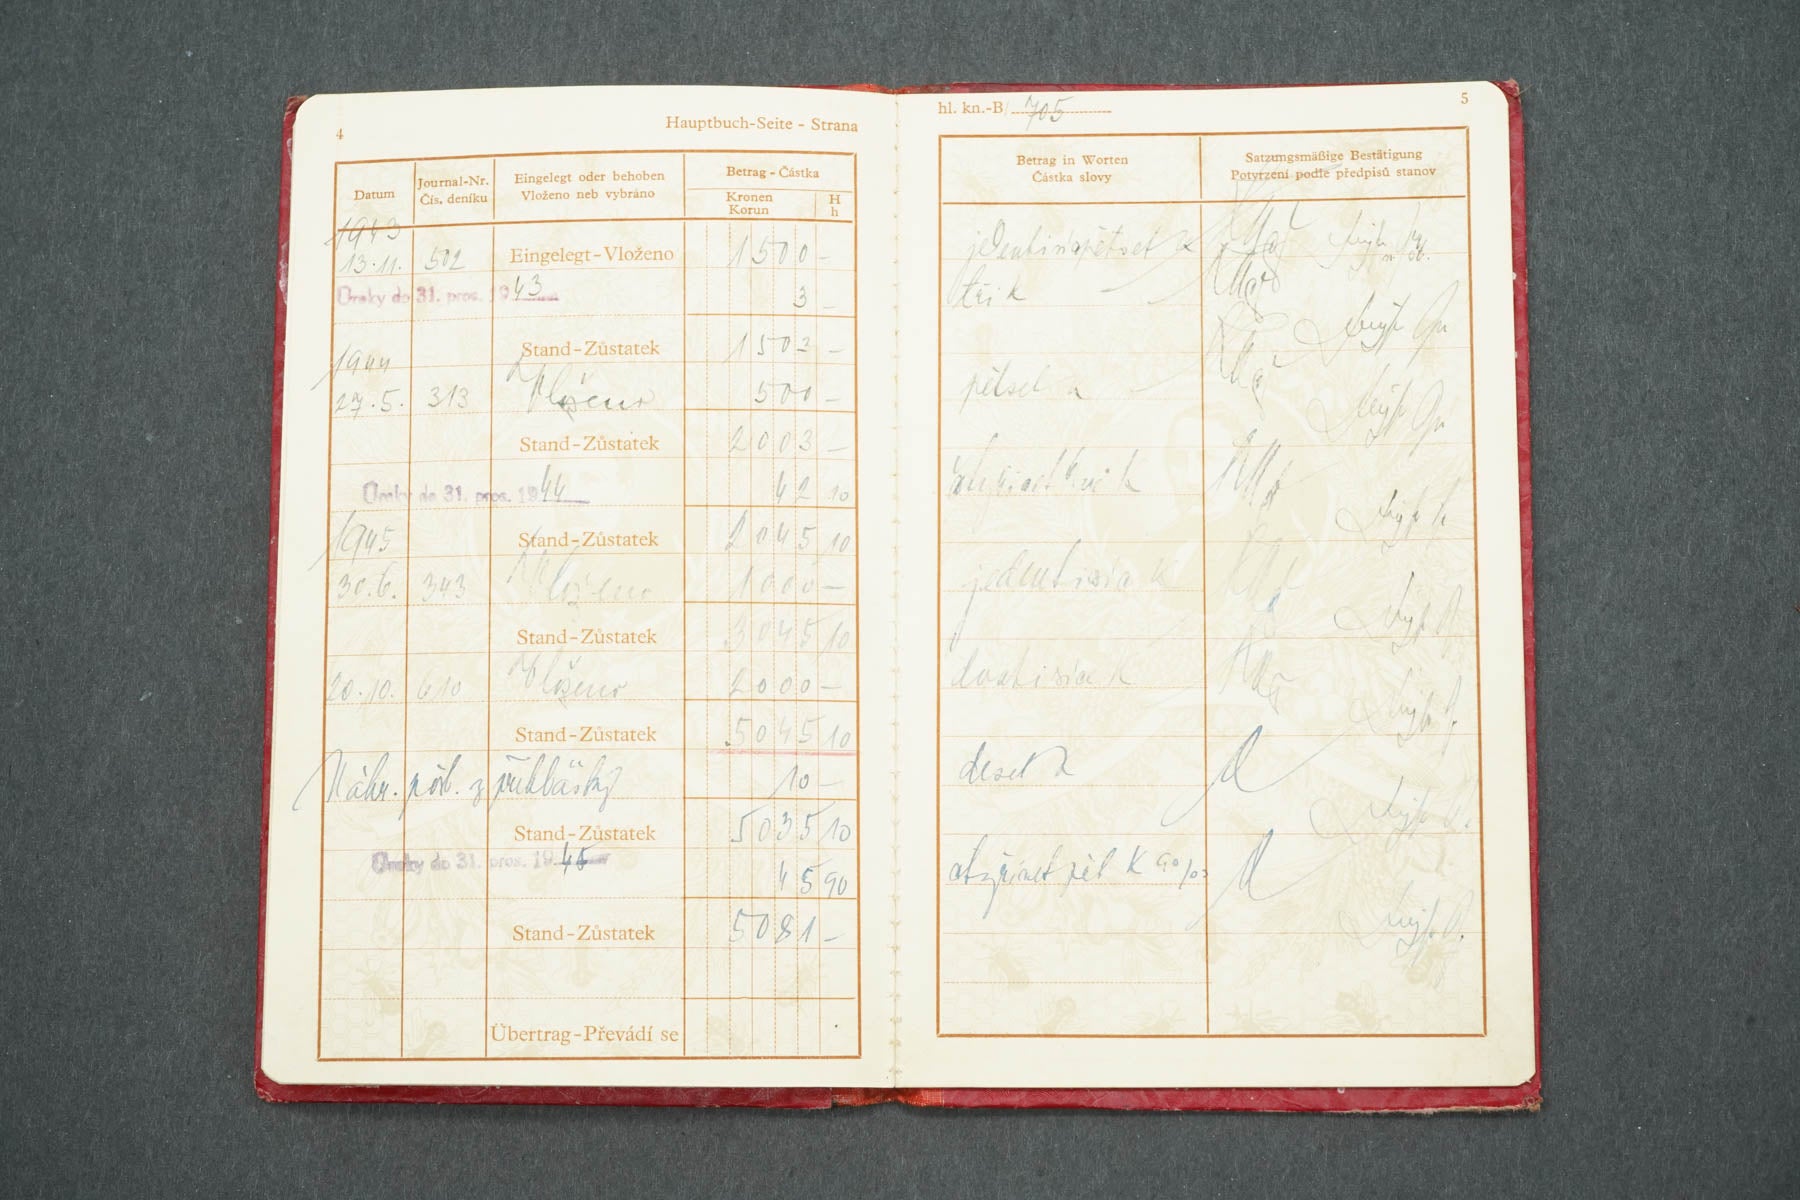 4
Hauptbuch-Seite - Strana
Datum
Journal-Nr.
Čís. deníku
Eingelegt oder behoben
Vloženo neb vybráno
Betrag - Částka
Kronen
Korun
H
h
1943
13.11. 502 Eingelegt - Vloženo 1500 -
Úroky do 31. pros. 1943 3 -
Stand - Zůstatek 1503 -
1944
27.5. 313 Vloženo 500 -
Stand - Zůstatek 2003 -
Úroky do 31. pros. 1944 42 10
Stand - Zůstatek 2045 10
1945
30.6. 343 Vloženo 1000 -
Stand - Zůstatek 3045 10
20.10. 610 Vloženo 2000 -
Stand - Zůstatek 5045 10
Náhr. pošt. z přihlášky 10 -
Stand - Zůstatek 5035 10
Úroky do 31. pros. 1945 45 90
Stand - Zůstatek 5081 -
Übertrag - Převádí se
hl. kn.-B/ 705
5
Betrag in Worten
Částka slovy
Satzungsmäßige Bestätigung
Potvrzení podle předpisů stanov
jedentisícpětset K
tři K
pětset K
jedentisíc K
dvatisíce K
deset K
čtyřicet pět K 90/00